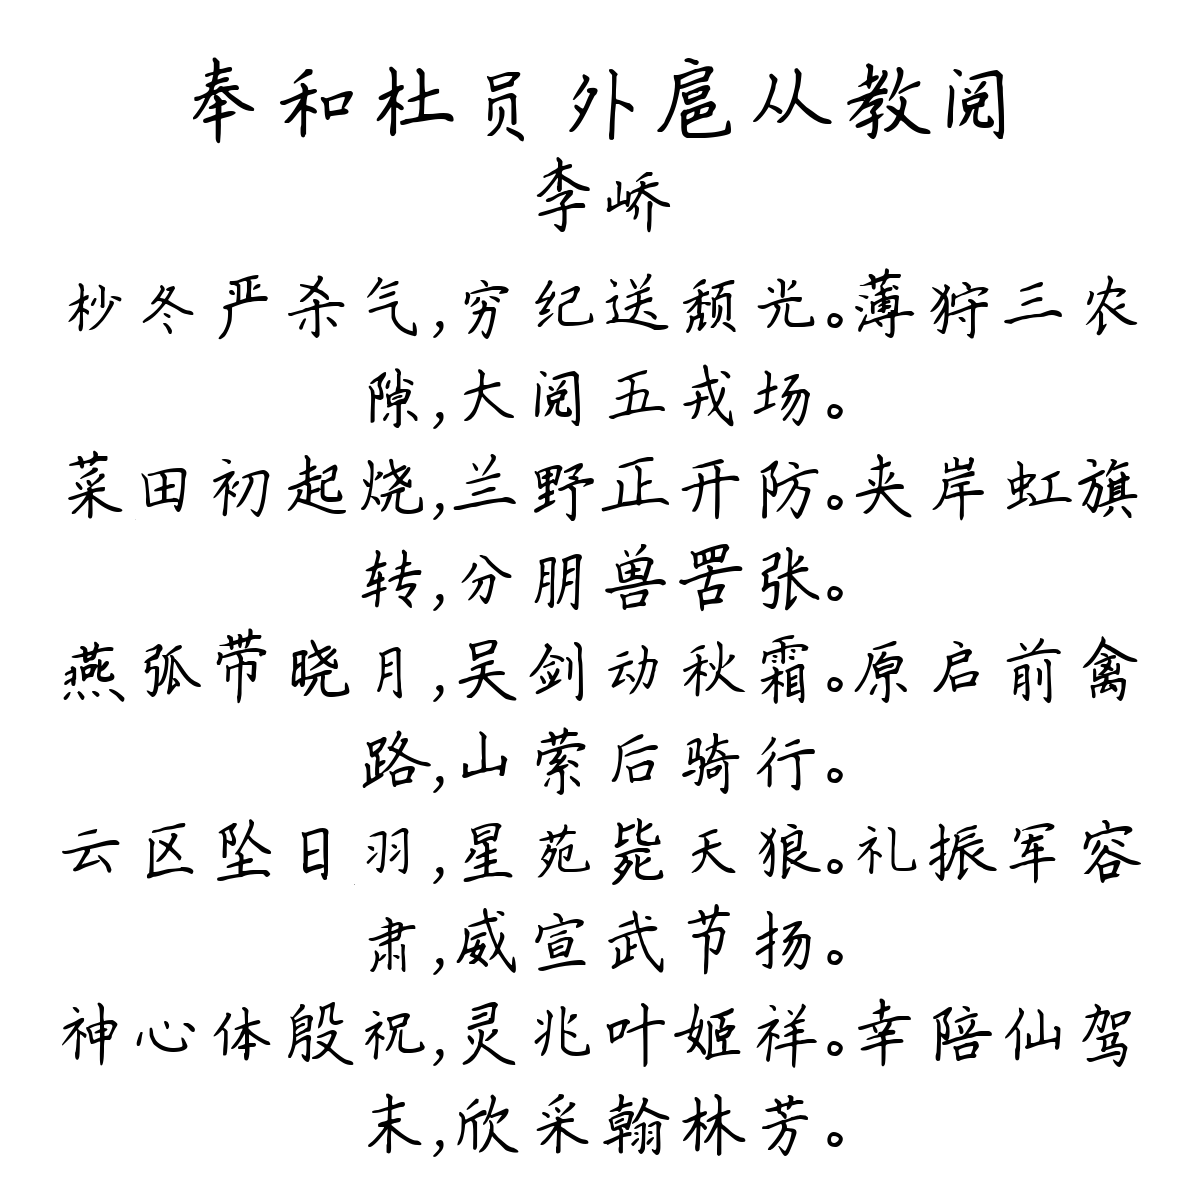 奉和杜员外扈从教阅
李峤
杪冬严杀气,穷纪送颓光。薄狩三农
隙,大阅五戎场。
菜田初起烧,兰野正开防。夹岸虹旗
转,分朋兽罟张。
燕弧带晓月,吴剑动秋霜。原启前禽
路,山萦后骑行。
云区坠日羽,星苑毙天狼。礼振军容
肃,威宣武节扬。
神心体殷祝,灵兆叶姬祥。幸陪仙驾
末,欣采翰林芳。